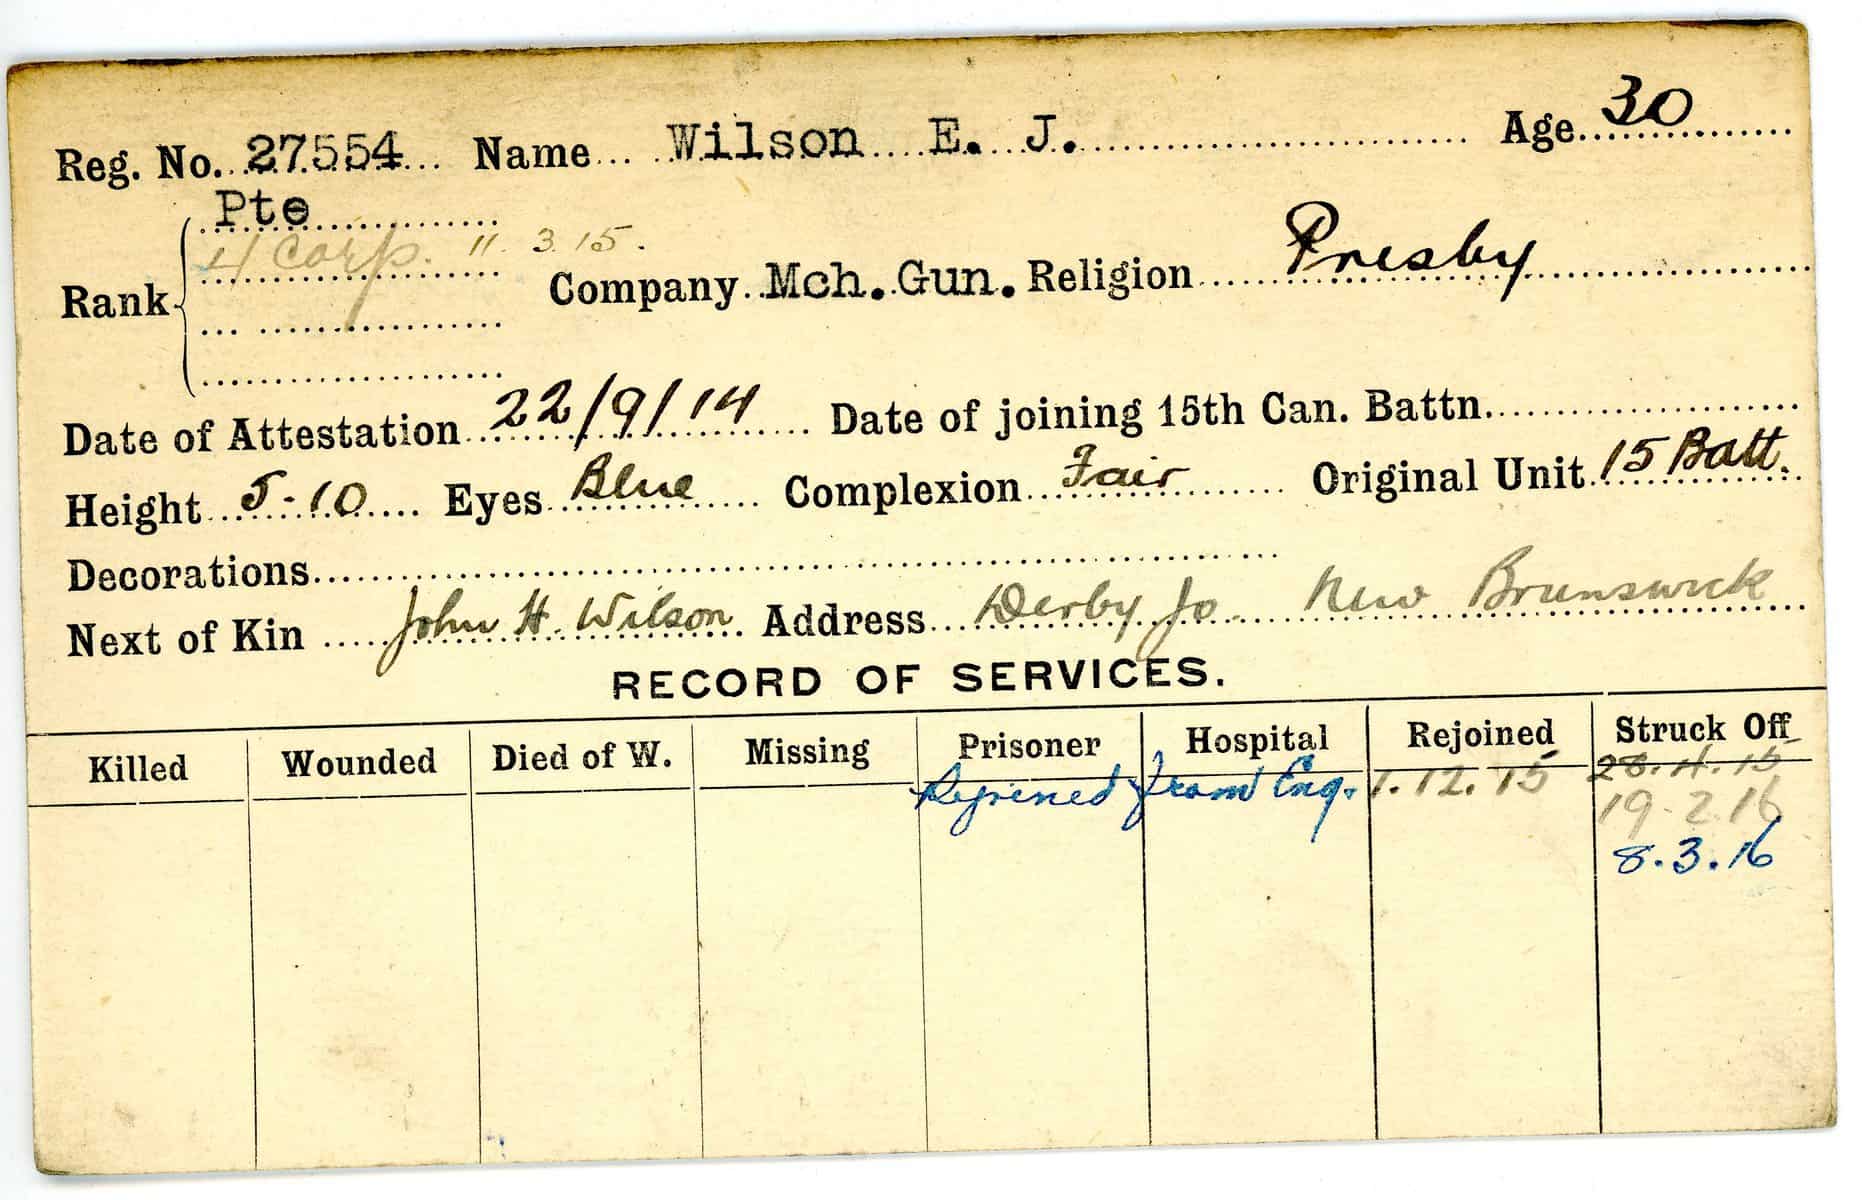 Reg. No. 27554 Name Wilson E. J. Age 30
Pte
Rank H Corp. 11.3.15.
Company Mch. Gun. Religion Presby
Date of Attestation 22/9/14 Date of joining 15th Can. Battn.
Height 5-10 Eyes Blue Complexion Fair Original Unit 15 Batt.
Decorations
Next of Kin John H. Wilson Address Derby Jo New Brunswick
RECORD OF SERVICES.
Killed Wounded Died of W. Missing Prisoner Hospital Rejoined Struck Off
Rejoined from Eng. 1.12.15 28.4.15
19-2.16
8.3.16